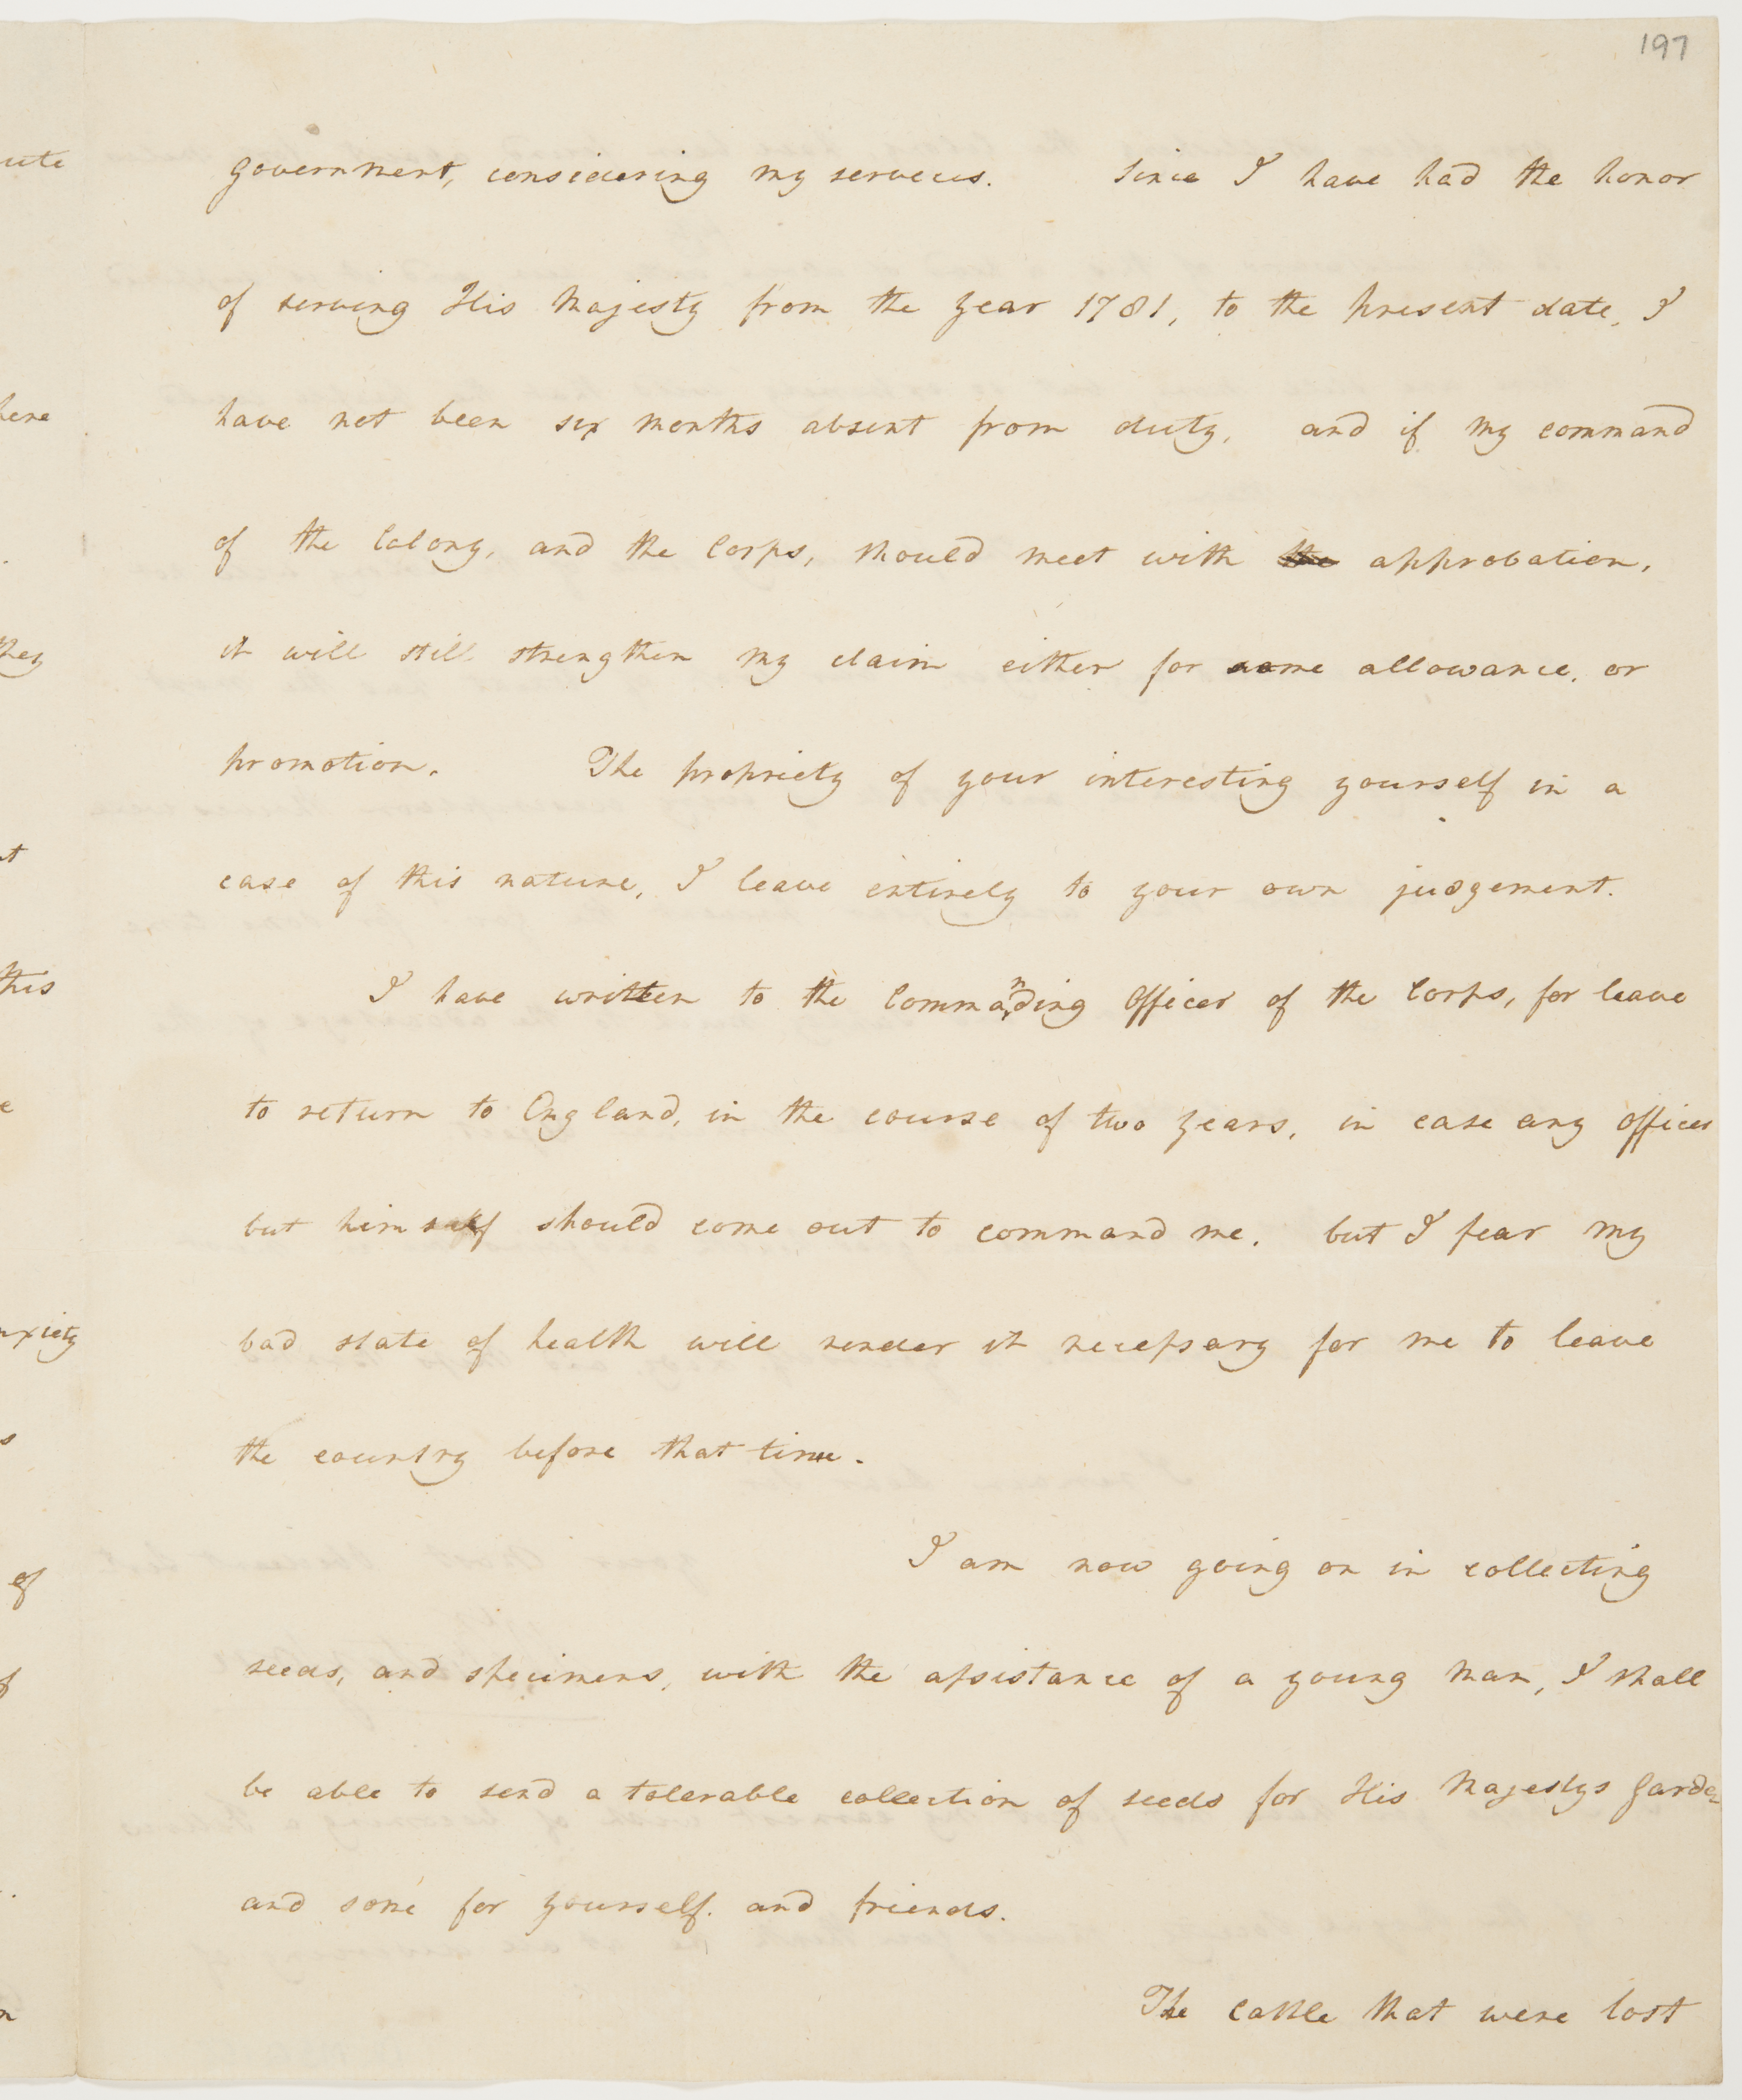 197
government, considering my services. Since I have had the honor
of serving His Majesty from the year 1781, to the present date, I
have not been six months absent from duty, and if my command
of the Colony, and the Corps, should meet with the approbation,
it will still strengthen my claim either for some allowance, or
promotion. The propriety of your interesting yourself in a
case of this nature, I leave entirely to your own judgement.
I have written to the Commanding Officer of the Corps, for leave
to return to England, in the course of two years, in case any officer
but himself should come out to command me. but I fear my
bad state of health will render it necessary for me to leave
the country before that time.
I am now going on in collecting
seeds, and specimens, with the assistance of a young man, I shall
be able to send a tolerable collection of seeds for His Majestys Garden
and some for yourself. and friends.
The cattle that were lost
ute
here
they
t
this
e
nxiety
s
of
f
n